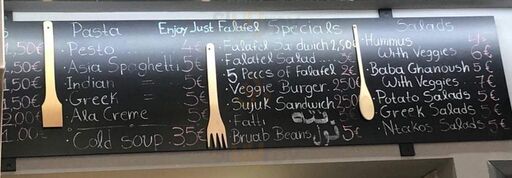 Enjoy Just Falafel Specials
1,50€
1,50€
1,50€
1,50€
2.00€
1.00€
Pasta
Pesto 4€
Asia Spaghetti 5€
Indian = 5€
Greek = 5€
Ala Creme 5€
Cold soup 3.5€
Falafel Sandwich 2,50€
Falafel Salad
5 Pieces of Falafel 2€
Veggie Burger 250€
Sujuk Sandwich 250€
Fatti
Bruab Beans فول 5€
Salads
Hummus 4€
With Veggies 6€
Baba Ghanoush 5€
With Veggies 7€
Potato Salads 5€
Greek Salads 5€
Ntakos Salads 5€